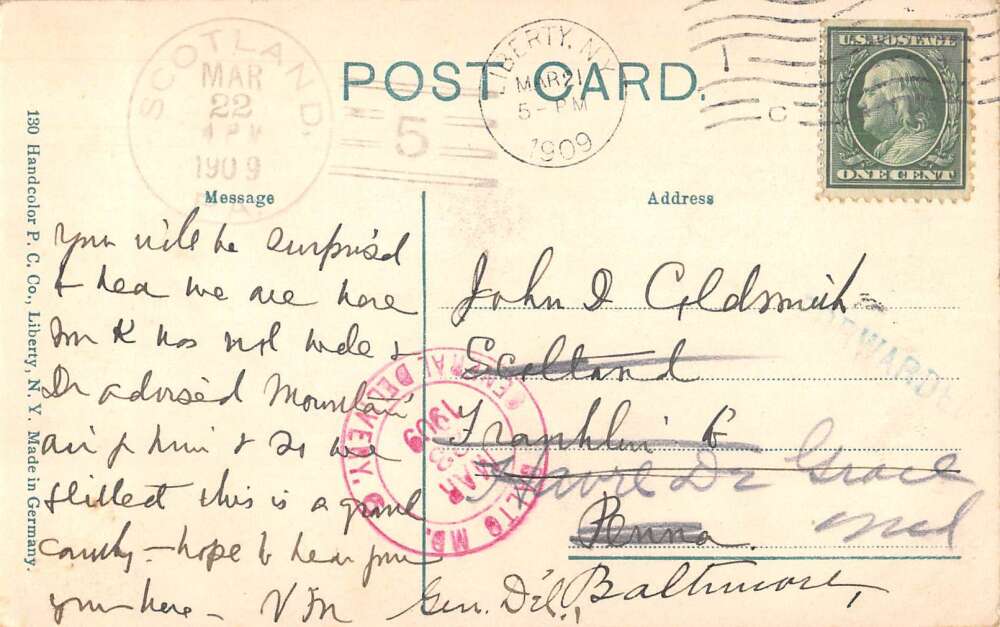 SCOTLAND.
MAR
22
1909
PA.
5
POST CARD.
LIBERTY, N.Y.
MAR 21
5-PM
1909
1
C
U.S. POSTAGE
ONE CENT
130 Handcolor P. C. Co., Liberty, N. Y. Made in Germany.
Message
You will be surprised
to hear we are here
Mr K has not well &
Dr advised Mountain
air for him & so we
this is a grand
country - hope to hear from
you here -
Address
John Goldsmith
Scotland
Franklin Co
Havre De Grace
Penna.
Md
Gen. Del., Baltimore,
BALTO MD.
GENERAL DELIVERY.
MAR
1909